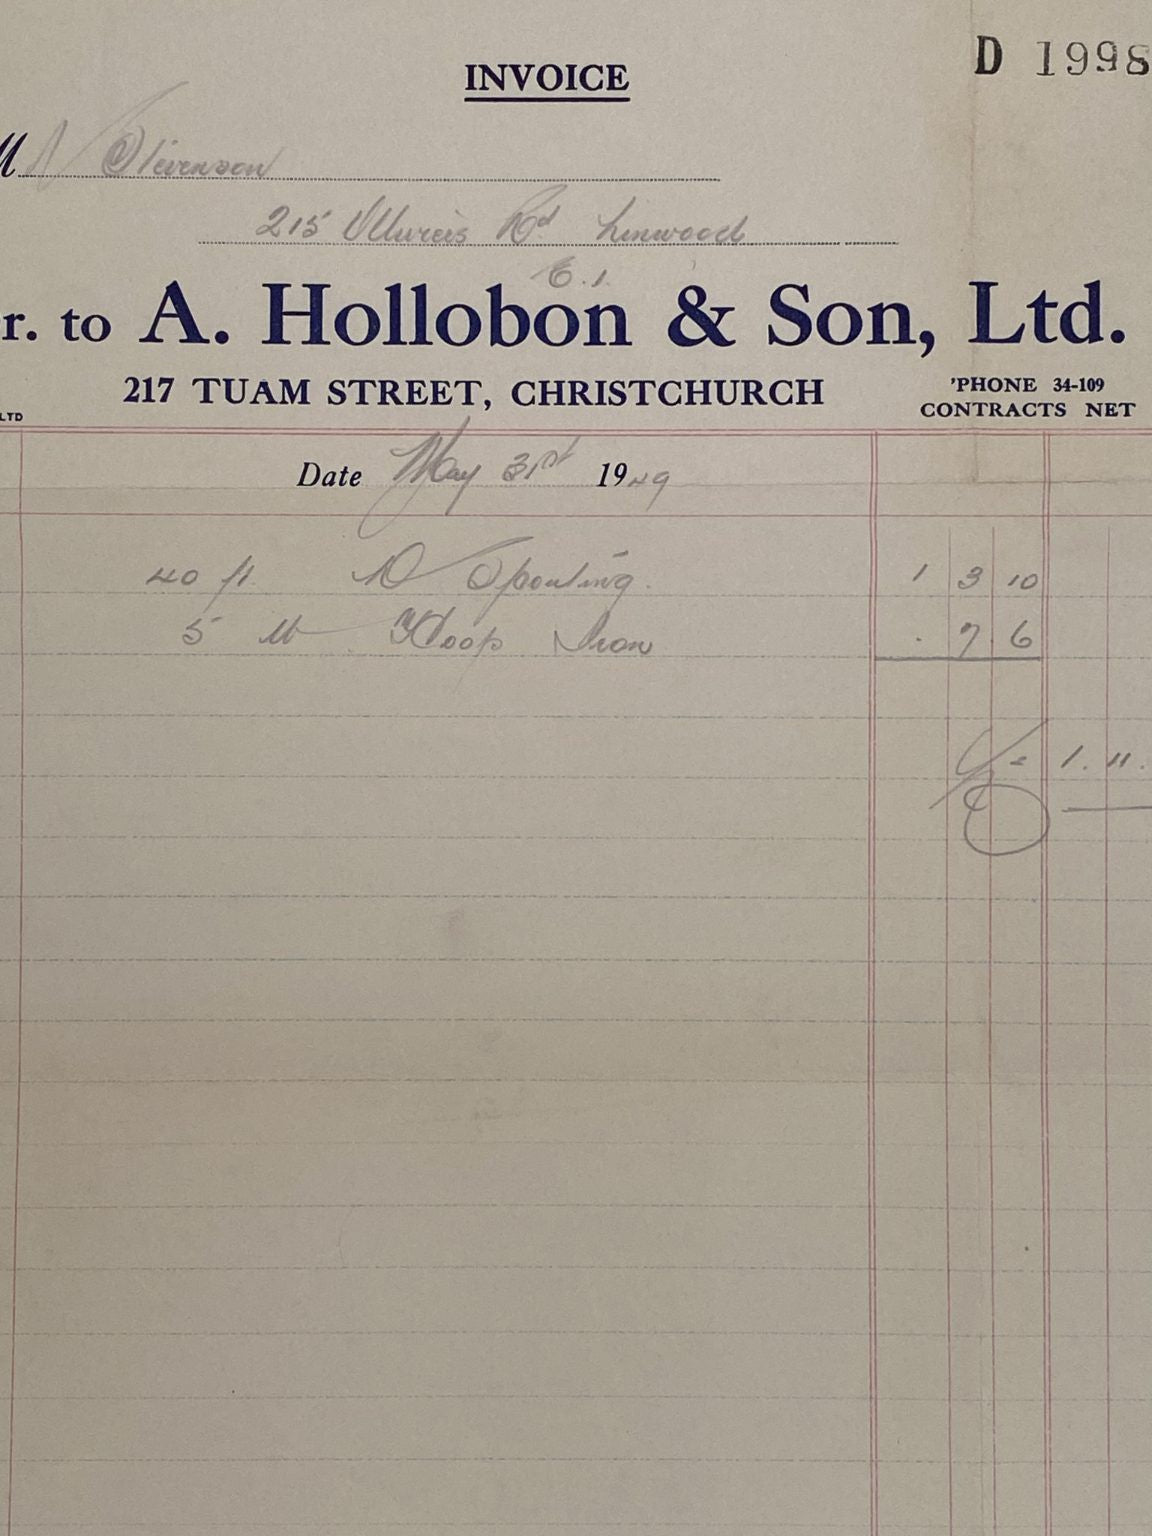 INVOICE
D 1998
M Stevenson
215 Rd Linwood
E.1.
r. to A. Hollobon & Son, Ltd.
217 TUAM STREET, CHRISTCHURCH
'PHONE 34-109
CONTRACTS NET
LTD
Date May 31st 1949
40 ft. D Spouting. 1 3 10
5 lb Hoop Iron . 7. 6
1. 11.